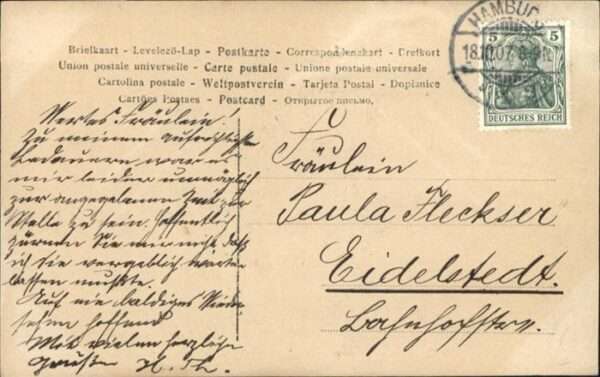 Briefkaart - Levelező-Lap - Postkarte - Correspondenzkart - Brefkort
Union postale universelle - Carte postale - Unione postale universale
Cartolina postale - Weltpostverein - Tarjeta Postal - Dopisnice
Cartões Postaes - Postcard - Открытое письмо.
HAMBURG
18.10.07. 8-9N.
5 5
DEUTSCHES REICH
Wertes Fräulein!
Zu meinem aufrichtigsten
Bedauern war es
mir leider unmöglich
zur angegebenen Zeit zur
Stelle zu sein. Hoffentlich
zürnen Sie mir nicht, daß
ich Sie vergeblich warten
lassen mußte.
Auf ein baldiges Wieder
sehen hoffend
Mit vielen herzlichen
Grüßen H. Th.
Fräulein
Paula Fleckser
Eidelstedt.
Bahnhofstr.